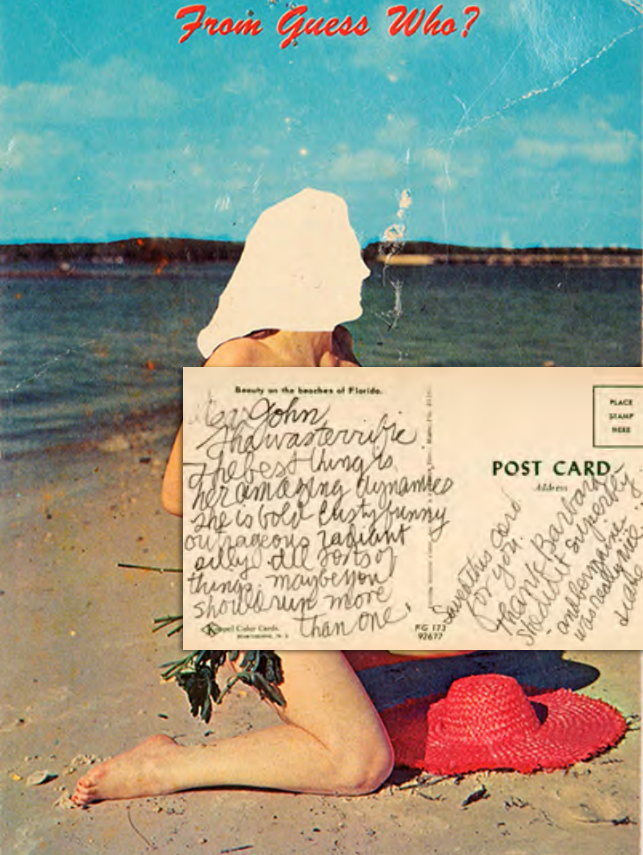 From Guess Who?
Beauty on the beaches of Florida.
John
was terrific
the best thing is
her amazing dynamics
she is bold lusty funny
outrageous radiant
silly all sorts of
things. maybe you
should run more
than one.
Koppel Color Cards
HAWTHORNE, N. J.
PG 173
92677
PLACE
STAMP
HERE
POST CARD
Address
Saved this card
for you.
Thank Barbara
she did it superbly
and Bergamine
was really nice